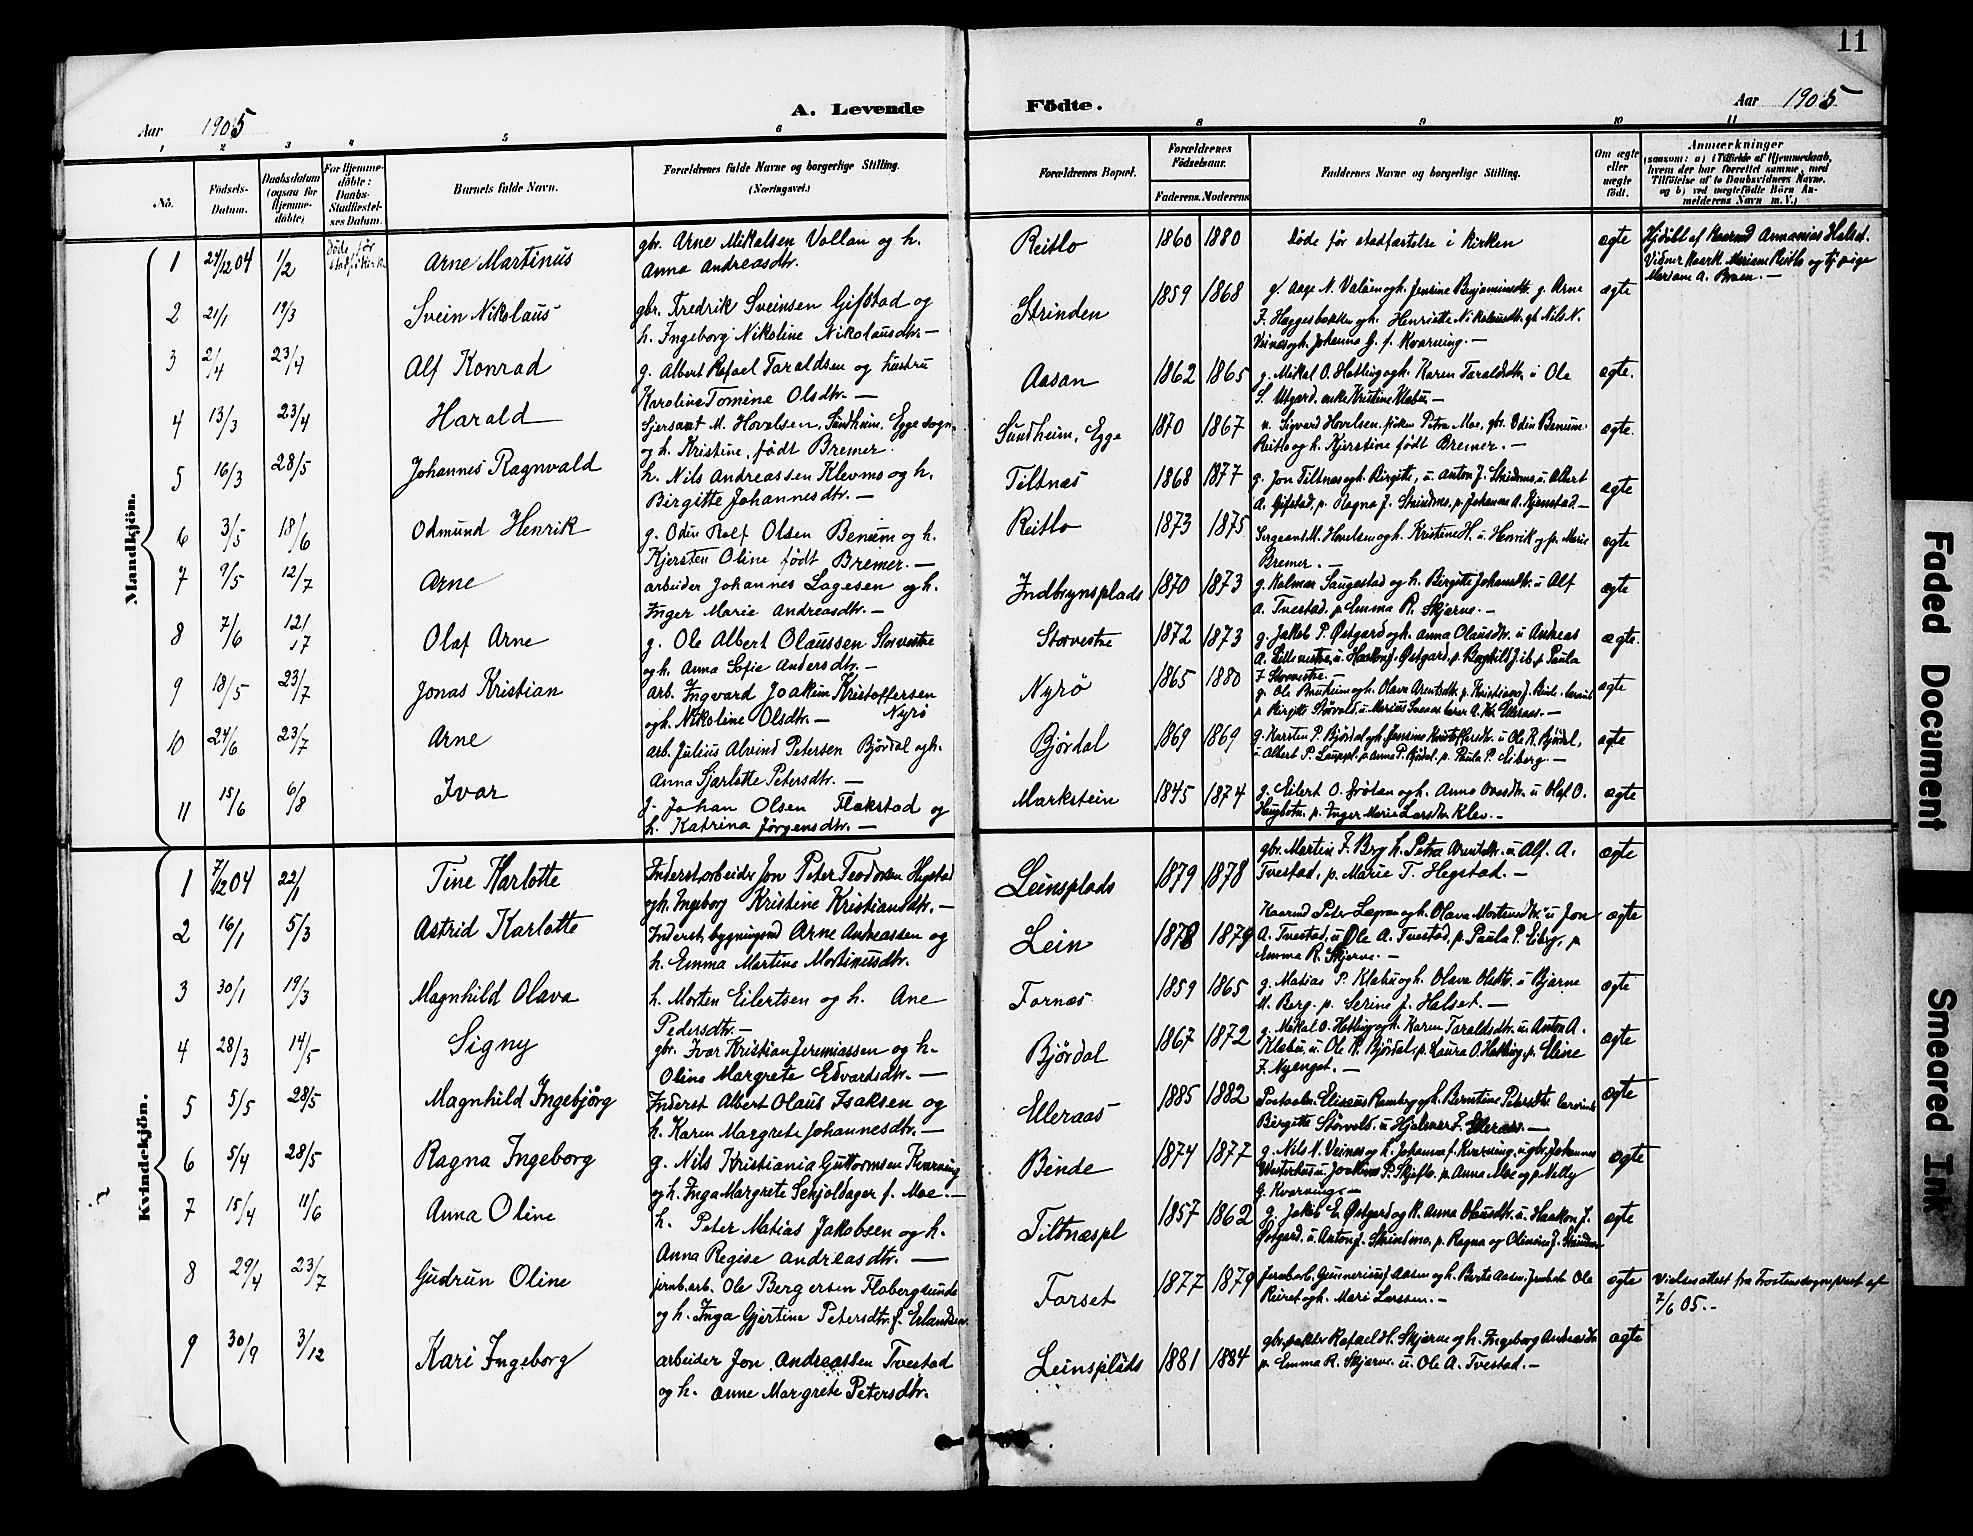 11
Aar 1905
A. Levende Födte.
Aar 1905
1 2 3 4 5 6 8 9 10 11
No.
Födsels-Datum.
Daabsdatum (ogsaa for Hjemme-döbte)
For Hjemme-döbte: Daabs Stadfæstel-ses Datum.
Barnets fulde Navn.
Forældrenes fulde Navne og borgerlige Stilling. (Næringsvei.)
Forældrenes Bopæl.
Forældrenes Födselsaar.
Faderens. Moderens
Fadderenes Navne og borgerlige Stilling.
Om ægte eller uægte födt.
Anmærkninger
(saasom: a) i Tilfælde af Hjemmedaab, hvem der har forrettet samme, med Tilföielse af to Daabsvidners Navne, og b) ved uægtefödte Börn Anmelderens Navn m. V.)
Mandkjön.
1 24/12 04 1/2 Döde før Arne Martinus gbr. Arne Mikalsen Vollan og h.
Anna Andreasdtr. Reitlo 1860 1880 Døde før stadfæstelse i kirken ægte Hjdøbt af Kaarmd Annanias Halset.
Vidner Kaark Meriam Reitlo og tj pige
Meriam A. Braen. —
2 21/1 19/3 Svein Nikolaus gbr. Fredrik Sveinsen Gifstad og
h. Ingeborg Nikoline Nikolausdtr. — Strinden 1859 1868 g/ Aage N. Valøen og h. Jensine Benjaminsdtr. g. Arne
F. Haggesbakken og h. Henriette Nikolausdtr. gb. Nils N.
Veines og h. Johanna G. f. Kvarning. — ægte
3 2/4 23/4 Alf Konrad g. Albert Rafael Taraldsen og hustru
Karoline Tomine Olsdtr. — Aasan 1862 1865 g. Mikal O. Hatling og h. Karen Taraldsdtr. u Ole
S. Utgard. enke Kristine Klabu — ægte.
4 13/3 23/4 Harald Sjersant M. Hovelsen, Sundheim, Egge sogn,
og h. Kristine, født Bremer. Sundheim, Egge 1870 1867 u. Sigvard Hovelsen, frøken Petra Moe, gbr. Odin Benum
Reitlo og h. Kjerstine født Bremer. — ægte.
5 16/3 28/5 Johannes Ragnvald h. Nils Andreassen Klevmo og h.
Birgitte Johannesdtr. — Tiltnæs 1868 1877 g. Jon Tiltnæs og h. Birgitte, u. Anton J. Strindmo, u. Albert
A. Gifstad, p. Ragna J. Strindmo, p. Johanna A. Kjenstad. — ægte
6 3/5 18/6 Odmund Henrik g. Odin Rolf Olsen Benum og h.
Kjersten Oline født Bremer. — Reitlo 1873 1875 Sergeant M. Hovelsen og h. Kristine H. u. Henrik og p. Marie
Bremer. — ægte
7 9/5 12/7 Arne arbeider Johannes Lagesen og h.
Inger Marie Andreasdtr. — Indbrynsplads 1870 1873 g. Kalmar Saugestad og h. Birgitte Johansdtr. u Alf
A. Tvestad. p Emma R. Skjerve. — ægte
8 7/6 12/7 Olaf Arne g. Ole Albert Olaussen Storvestre
og h. Anna Sofie Andersdtr. — Storvestre 1872 1873 g. Jakob P. Østgard og h. Anna Olausdtr. u Andreas
A. Lillevestre, u. Haakon J. Østgard, p. Borghild J. ib, p Paula
F. Storvestre — ægte.
9 18/5 23/7 Jonas Kristian arb. Ingvard Joakim Kristoffersen
og h. Nikoline Olsdtr. — Nyrø Nyrø 1865 1880 g. Ole Brusheim og h. Olava Arentsdtr.
p. Birgitte Storvold. u. Marius ægte
10 24/6 23/7 Arne arb. Julius Alvind Petersen Bjørdal og h.
Anna Sjarlotte Petersdtr. — Bjørdal 1869 1869 g. Karsten P. Bjørdal og h. Jensine Kristoffersdtr. u Ole R. Bjørdal,
u Albert P. p Anna P. Bjørdal. p. Paula P. Eiberg. — ægte
11 15/6 6/8 Ivar g. Johan Olsen Flakstad og
h. Katrina Jørgensdtr. — Markstein 1845 1874 g. Eilert O. og h. Anna Ovesdtr. u Olaf O.
Haugbotn. p. Inger Marie Larsdtr. Klev. — ægte
Kvindekjön.
1 7/12 04 22/1 Tine Karlotte Inderst arbeider Jon Peter Teodorsen Hegstad
og h. Ingeborg Kristine Kristiansdtr. — Leinsplads 1879 1878 gbr. Martin F. Bry h. Petra Arentsdtr. u Alf. A.
Tvestad, p. Marie T. Hegstad. — ægte
2 16/1 5/3 Astrid Karlotte Inderst, bygningsmd Arne Andreassen og
h. Emma Martine Mortinusdtr. Lein 1878 1879 Kaarmd Peter og h. Olava Mortensdtr. u Jon
A. Tvestad, u Ole A. Tvestad, p Paula P. Eiberg, p
Emma R. Skjerve. — ægte
3 30/1 19/3 Magnhild Olava h. Morten Eilertsen og h. Ane
Pedersdtr. — Fornæs 1859 1865 g. Matias P. Klabu og h. Olava Olsdtr. u Bjarne
M. Berg. p. Serine J. Halset. — ægte
4 28/3 14/5 Signy gbr. Ivar Kristian Jeremiassen og h.
Oline Margrete Edvardsdtr. — Bjørdal 1867 1872 g. Mikal O. Hatling og h. Karen Taraldsdtr. u. Anton A.
Klabu, u. Ole R. Bjørdal, p. Laura O. Hatling, p Eline
F. Nyenget. — ægte
5 5/5 28/5 Magnhild Ingebjørg Inderst Albert Olaus Isaksen og
h. Karen Margrete Johannesdtr. — Elleraas 1885 1882 Postaabn. Eliseus Ramberg og h. Berntine Petersdtr. lærerinde
Birgitte Storvold. u Hjalmar F. Elleraas. — ægte
6 5/4 28/5 Ragna Ingeborg g. Nils Kristiania Guttormsen Kvarning
og h. Inga Margrete Schjoldager f. Moe. — Binde 1874 1877 g. Nils N. Veines og h. Johanna f. Kvarning. u gbr. Johannes
Westerhus u Joakim P. Skjeflo. p Anna Moe og p Nelly
G. Kvarving. — ægte
7 15/4 11/6 Anna Oline h. Peter Matias Jakobsen og h.
Anna Regise Andreasdtr. — Tiltnæspl 1857 1862 g. Jakob E. Østgard og h. Anna Olausdtr. u. Haakon J.
Østgard. u Anton J. Strindmo, p. Ragna og Olivine J. Strindmo ægte
8 29/4 23/7 Gudrun Oline jernb.arb. Ole Bergersen Flobergsunde
og h. Inga Gjertine Petersdtr. f. Erlandsen. Forset 1877 1879 Jernb.arb. Gunnerius J Aasen og h. Berte Aasen, Jernb.arb Ole
Reiret og h. Mari Larssen. — ægte Vielsesattest fra Frostens sogneprest af
7/6 05. —
9 30/9 3/12 Kari Ingeborg arbeider Jon Andreassen Tvestad
og h. Anne Margrete Petersdtr. Leinsplads 1881 1884 gbr. Rafael H. Skjerve og h. Ingeborg Andreasdtr
p. Emma R. Skjerve. u. Ole A. Tvestad. — ægte
Faded Document
Smeared Ink